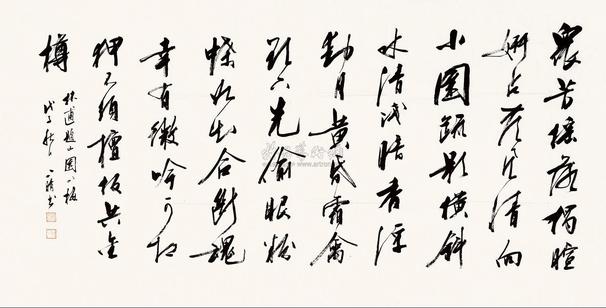 眾芳搖落獨暄
妍占盡風情向
小園疏影橫斜
水清淺暗香浮
動月黃昏霜禽
欲下先偷眼粉
蝶如知合斷魂
幸有微吟可相
狎不須檀板共金
樽
林逋
戊子秋